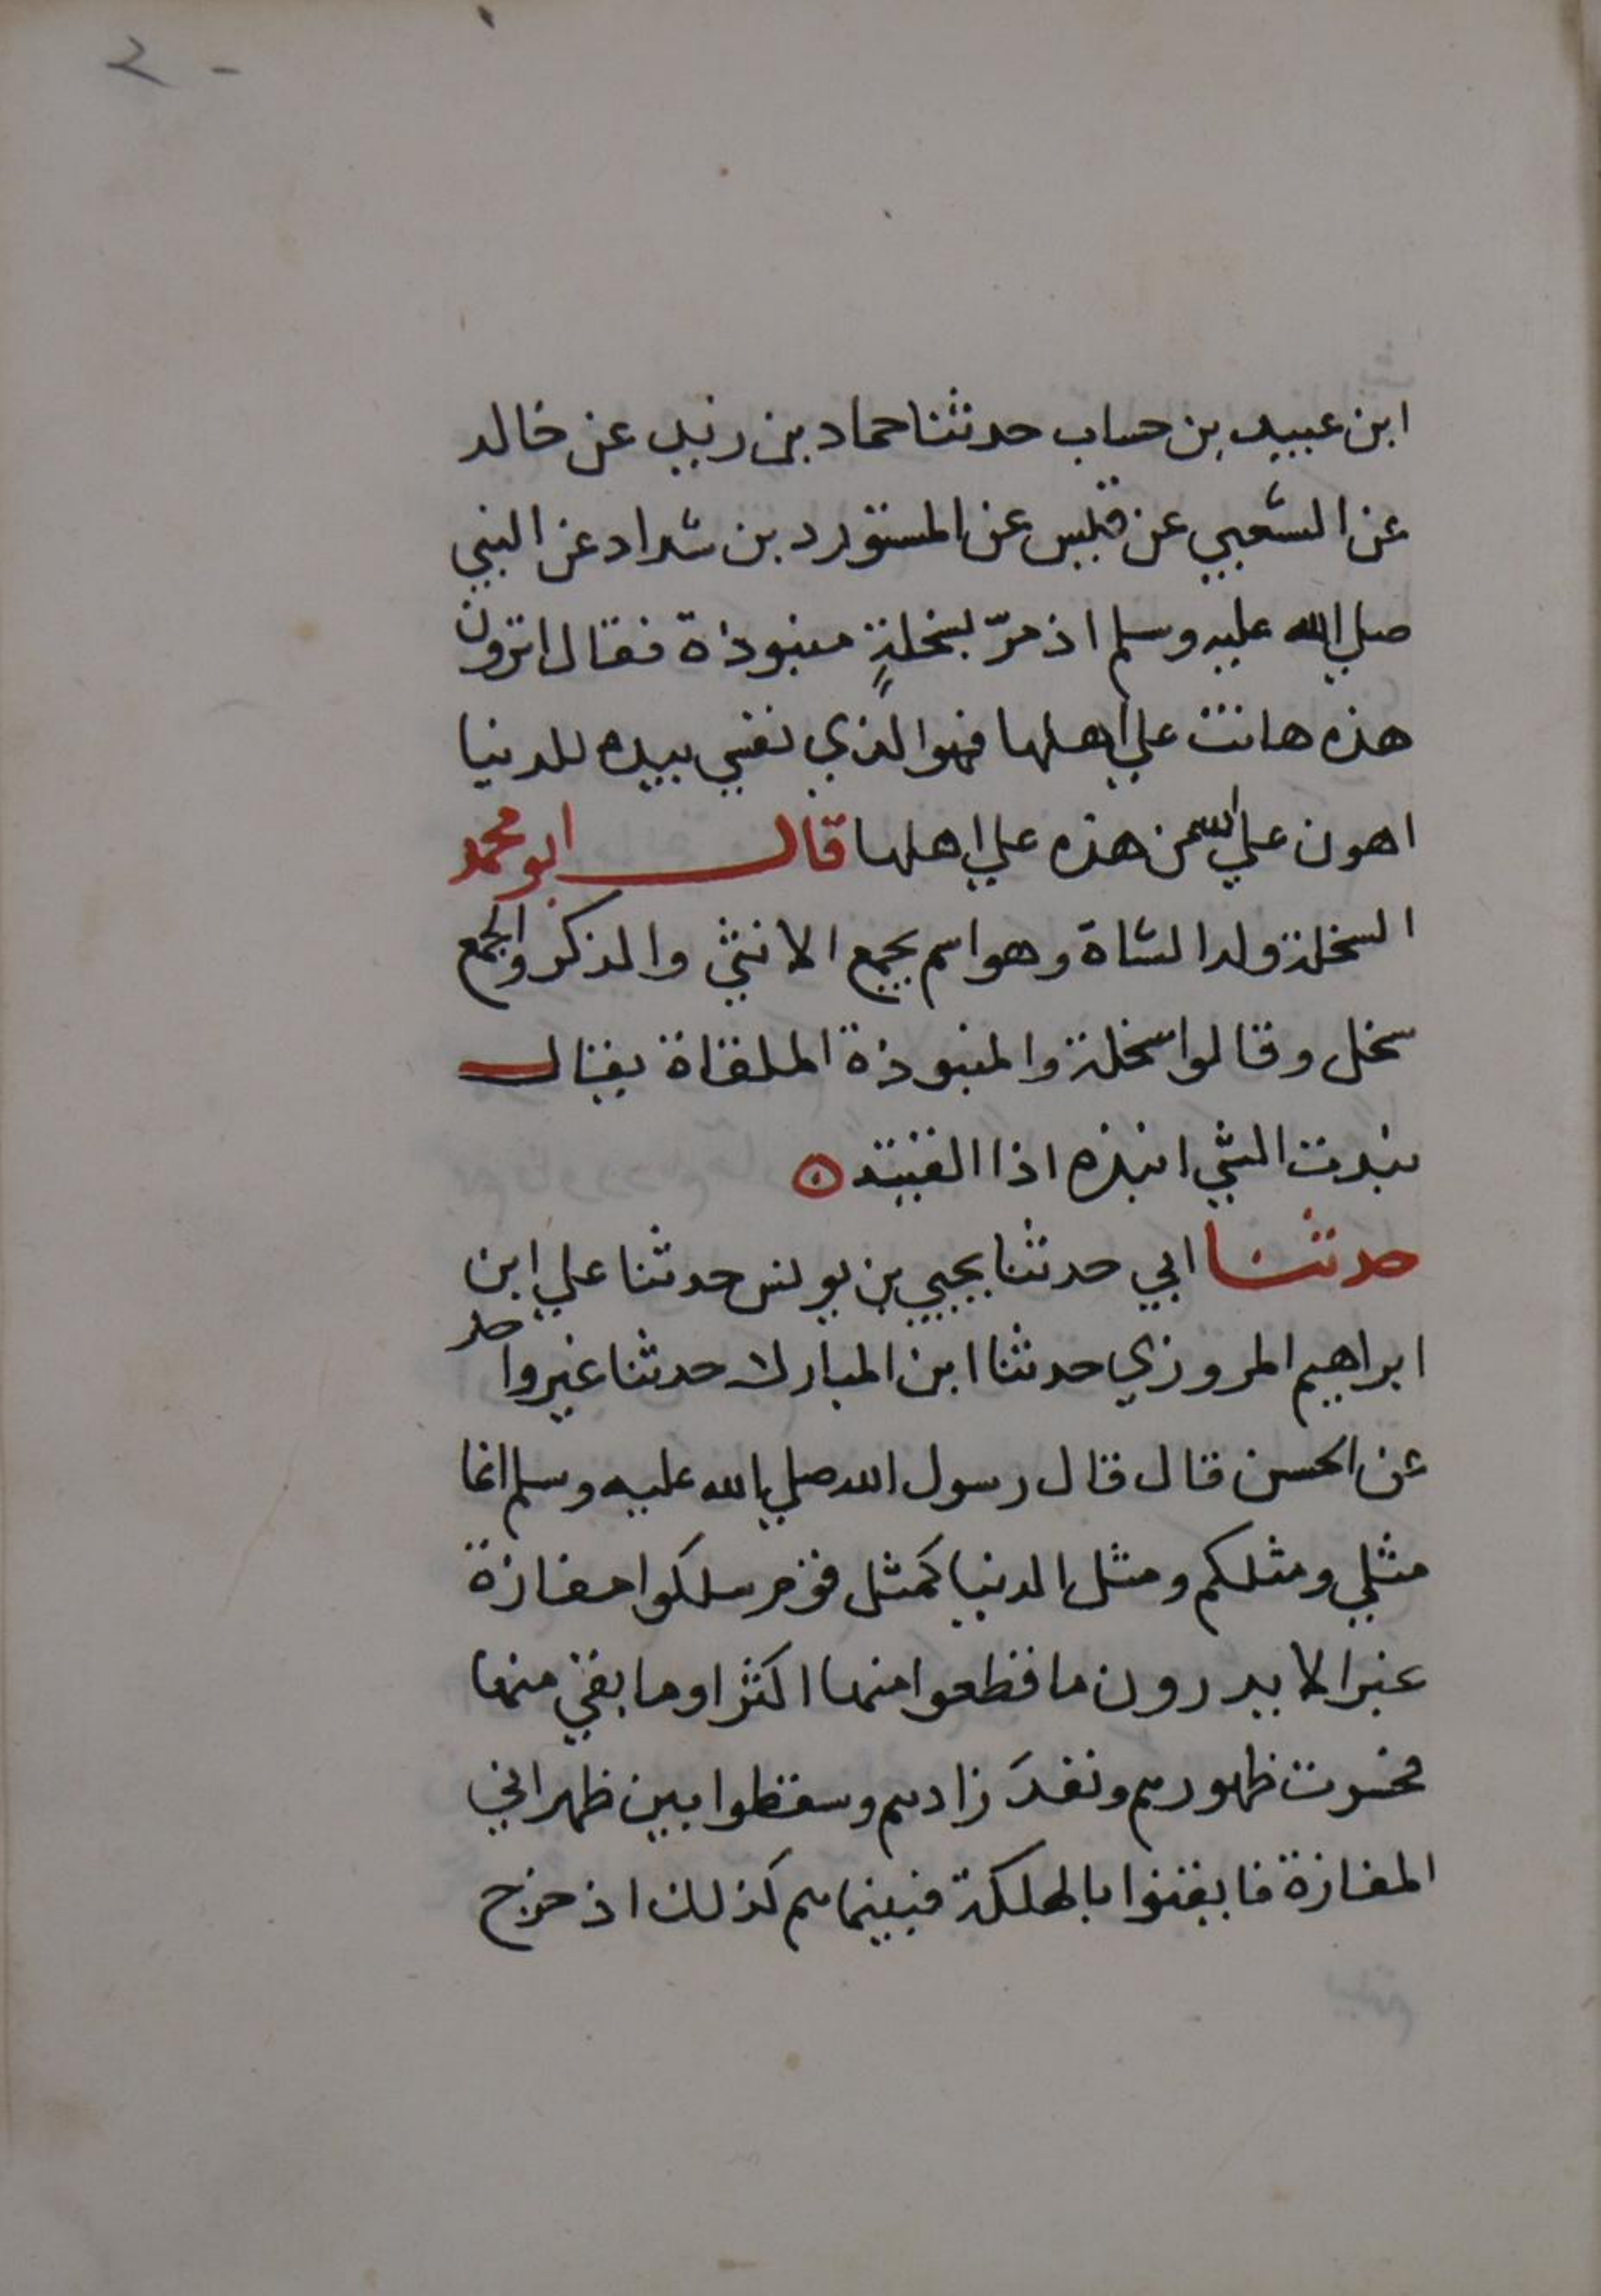 ٢٠
ابن عبيد بن حساب حدثنا حماد بن زيد عن خالد
عن الشعبي عن قيس عن المستورد بن شداد عن النبي
صلي الله عليه وسلم اذ مرّ بسخلةٍ منبوذة فقال اترون
هذه هانت علي اهلها فهو الذي نفسي بيده للدنيا
اهون علي الله من هذه علي اهلها قال ابو محمد
السخلة ولد الشاة وهو اسم يجمع الانثي والذكر والجمع
سخل وقالوا سخلة والمنبوذة الملقاة يقال
نبذت الشي انبذه اذا القيته
حدثنا ابي حدثنا يحيي بن يونس حدثنا علي ابن
ابراهيم المروزي حدثنا ابن المبارك حدثنا غير واحد
عن الحسن قال قال رسول الله صلي الله عليه وسلم انما
مثلي ومثلكم ومثل الدنيا كمثل قوم سلكوا مفازة
غبرا لا يدرون ما قطعوا منها اكثر او ما بقي منها
فحسرت ظهورهم ونفدَ زادهم وسقطوا بين ظهراني
المفازة فايقنوا بالهلكة فبينما هم كذلك اذ خرج